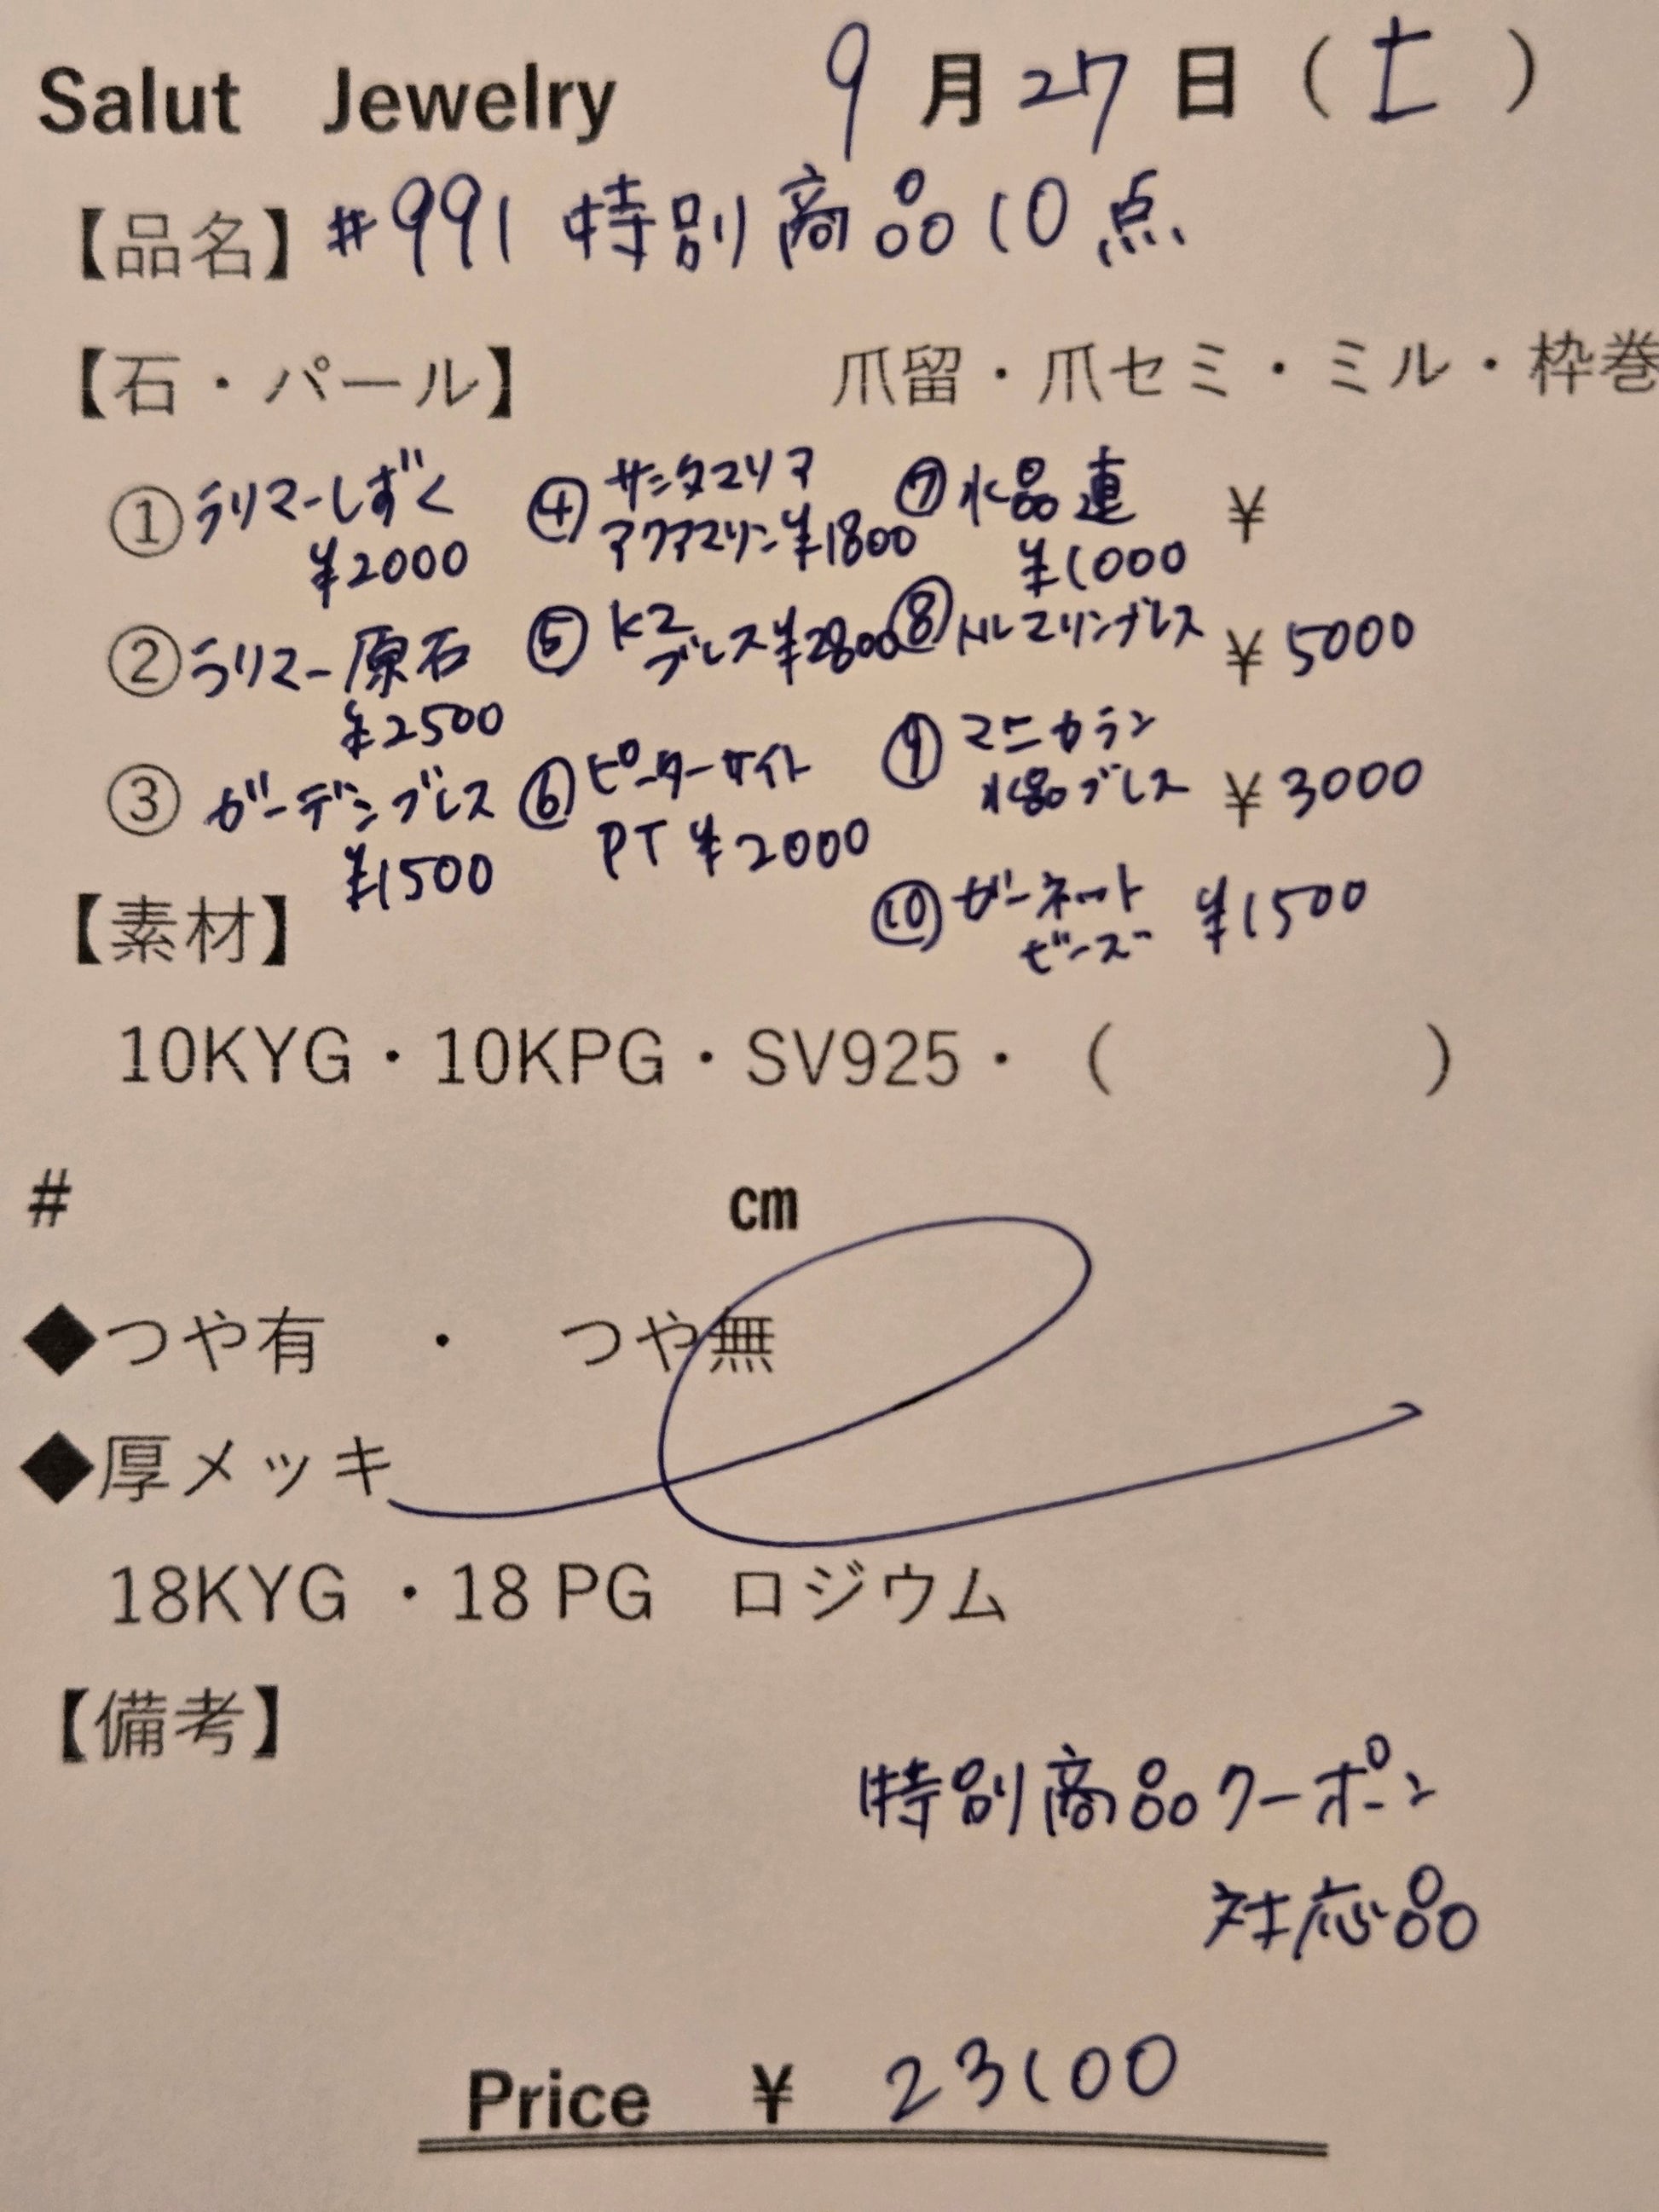 Salut Jewelry 9月27日(土)
【品名】#991 特別商品10点
【石・パール】 爪留・爪セミ・ミル・枠巻
①ラリマーしずく
¥2000
②ラリマー原石
¥2500
③ガーデンブレス
¥1500
④サンタマリア
アクアマリン¥1800
⑤K2
ブレス¥2800
⑥ピーターサイト
PT ¥2000
⑦水晶連 ¥
¥1000
⑧トルマリンブレス ¥5000
⑨マニカラン
水晶ブレス ¥3000
⑩ガーネット ¥1500
ビーズ
【素材】
10KYG・10KPG・SV925・( )
# cm
◆つや有 ・ つや無
◆厚メッキ
18KYG ・18 PG ロジウム
【備考】
特別商品クーポン
対応品
Price ¥ 23100